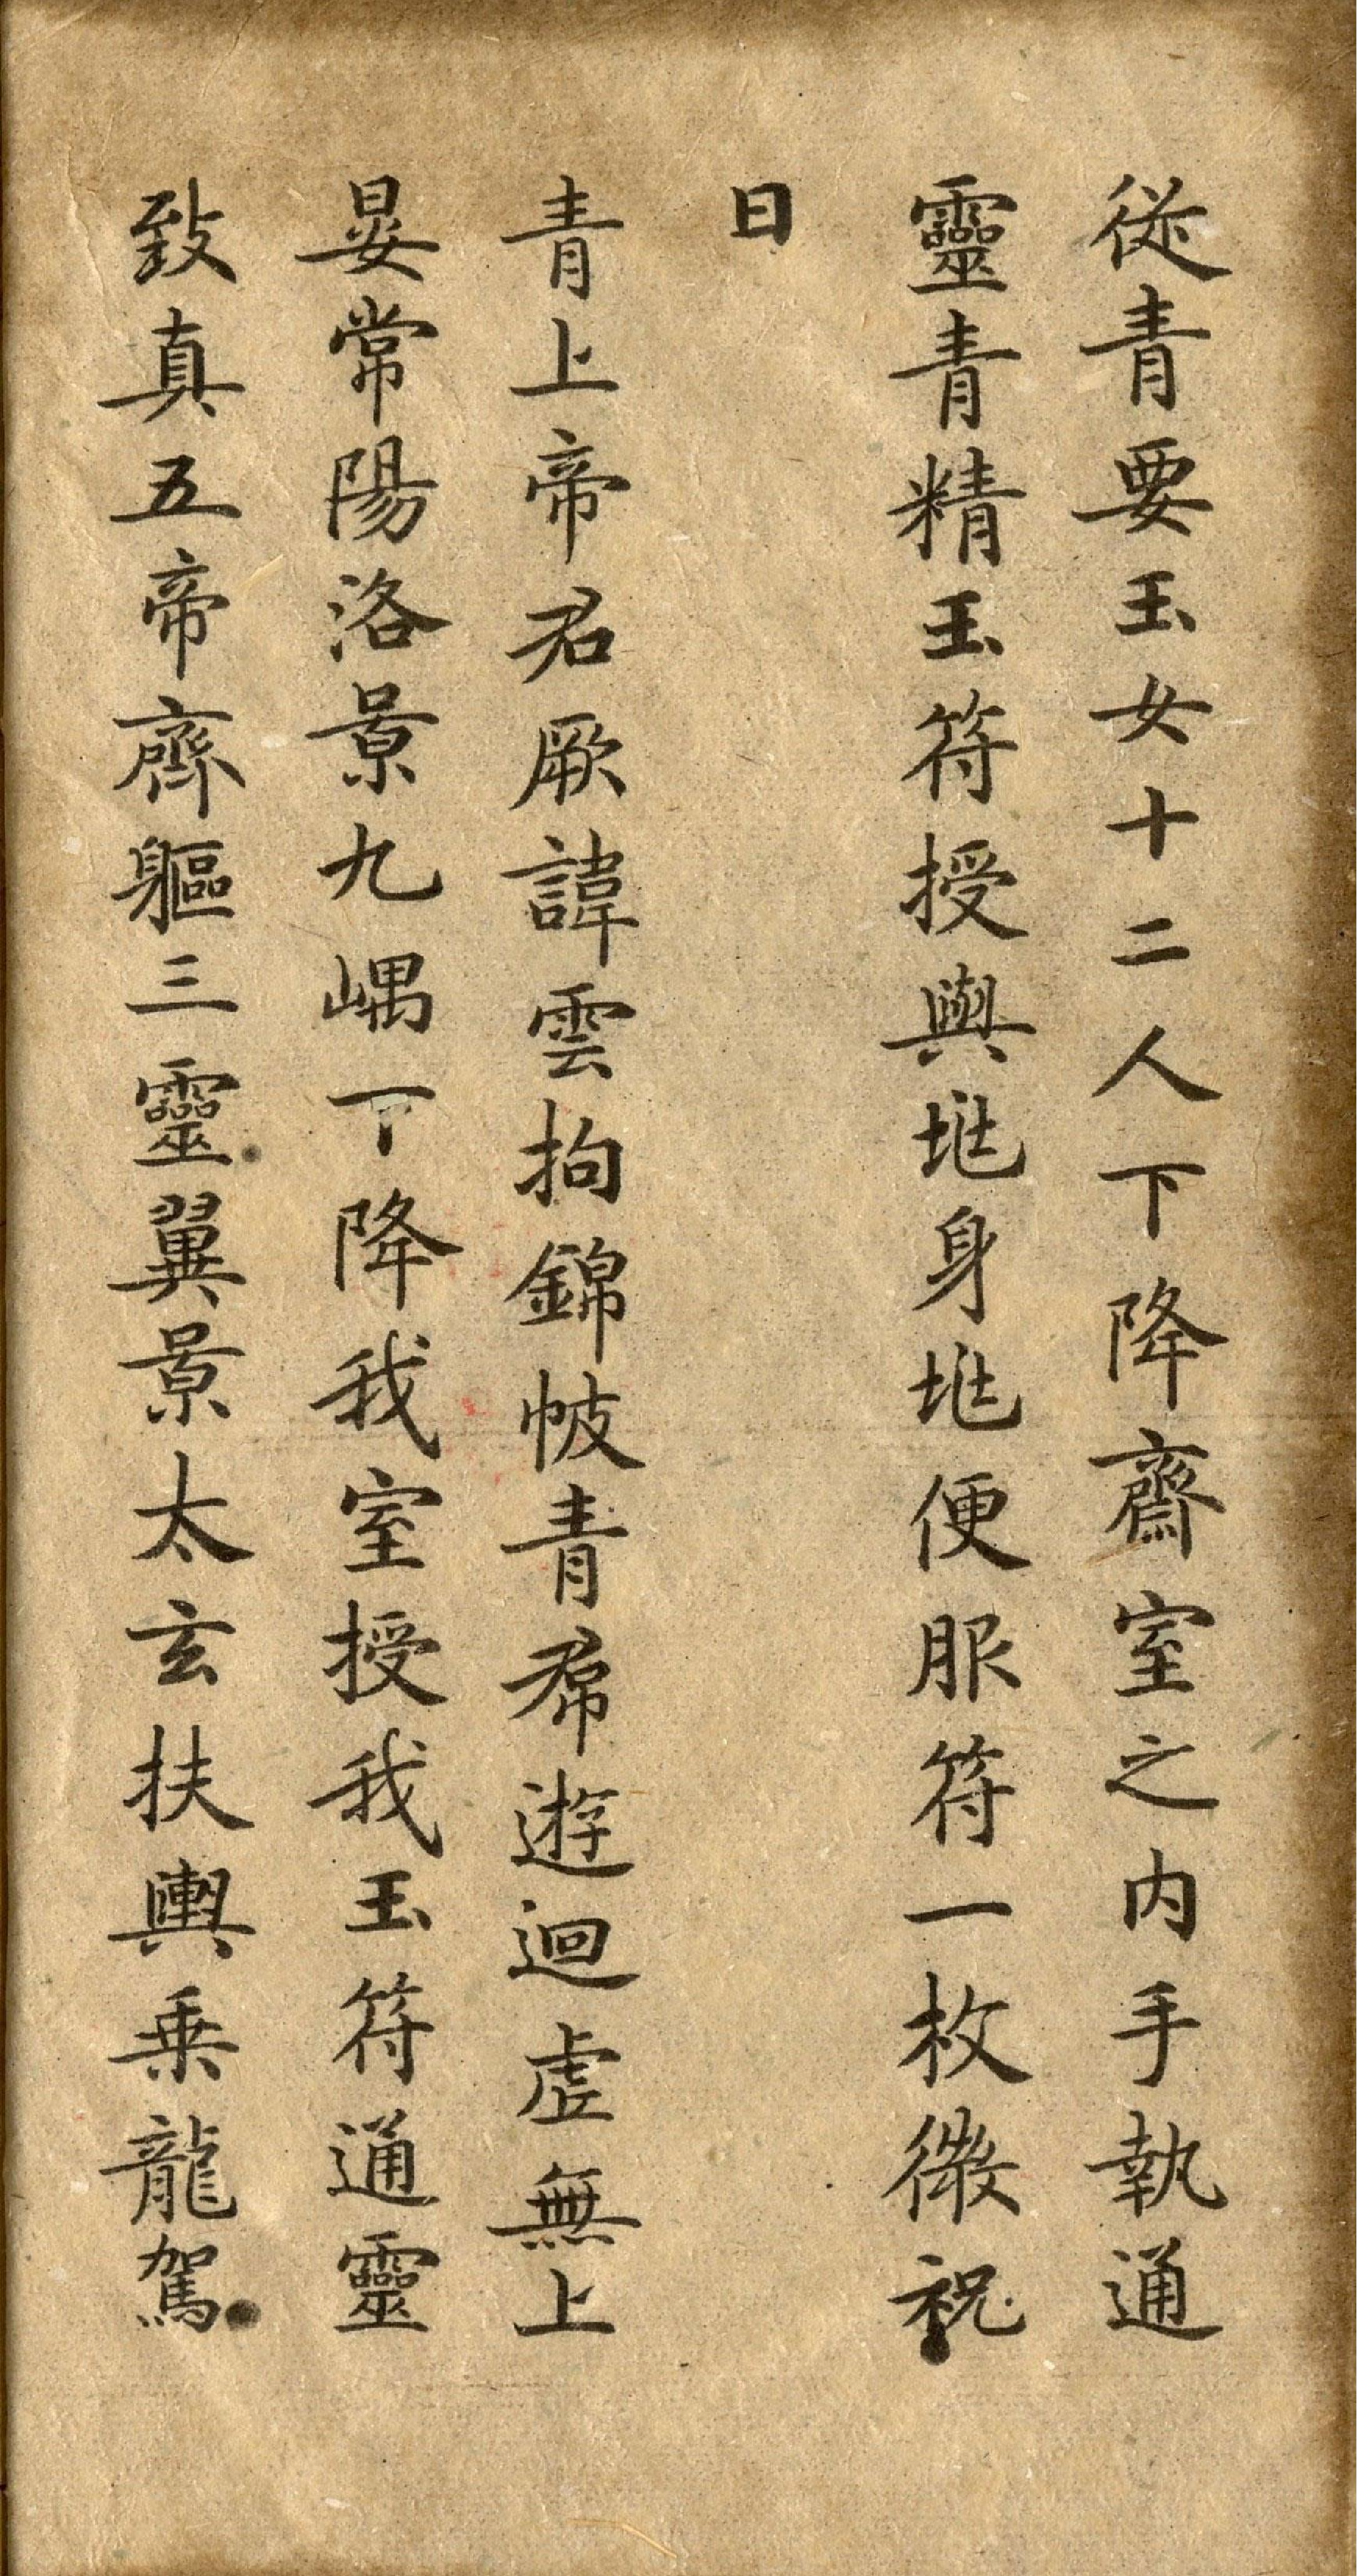 従青要玉女十二人下降齋室之内手執通
靈青精玉符授與兆身兆便服符一枚微祝
曰
青上帝君厥諱雲拘錦帔青帬遊迴虛無上
晏常陽洛景九嵎下降我室授我玉符通靈
致真五帝齊軀三靈翼景太玄扶輿乗龍駕